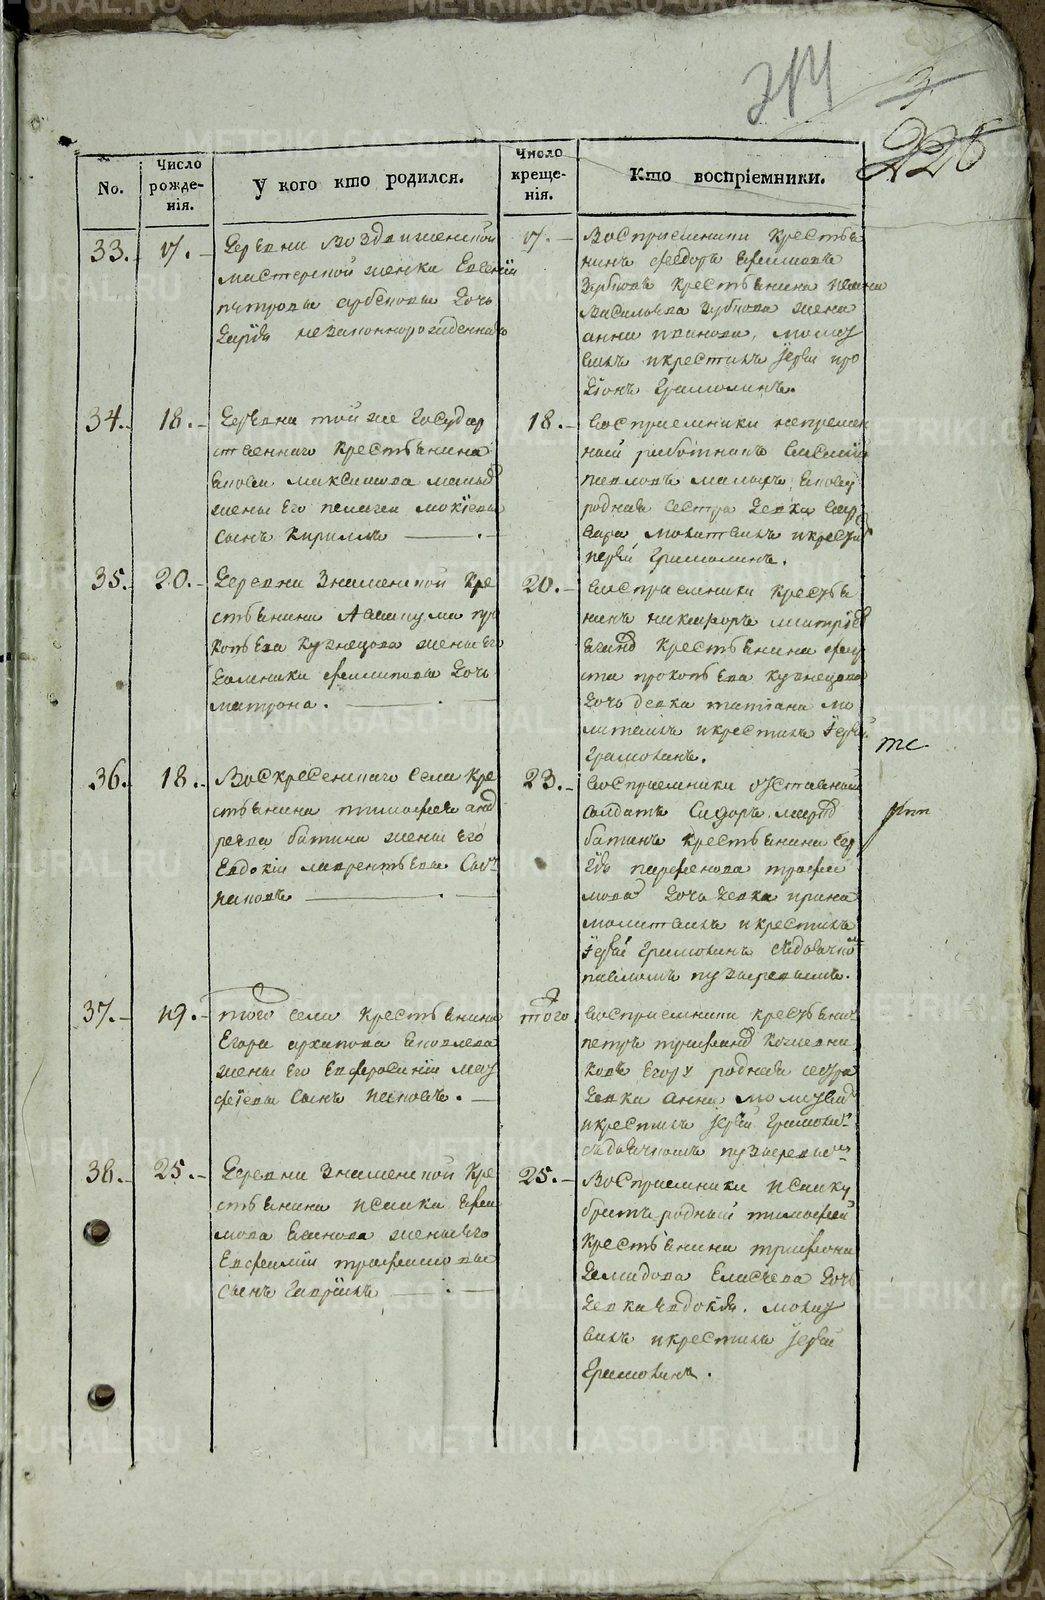 314
3
226
No.
Число рожде-нія.
У кого кто родился.
Число креще-нія.
Кто воспріемники.
33.
17.
Деревни Воздвиженской
мастерской женки Евгеніи
петровы дочь
Дарья незаконнорожденная
17.
Восприемники крестья
нинъ Феодоръ Ефимовъ
Зубковъ крестьянина Ивана
Васильева Зубкова жена
анна иванова, молит
вилъ и крестилъ Іерей про
діонъ Грамолинъ.
34.
18.
Деревни той же Государ
ственнаго крестьянина
максимова
жены его пелагеи мокіевы
сынъ Кириллъ
18.
Восприемники непремен
ный работникъ Василій
павловъ
родная сестра девка Вар
вара молитвилъ и крестил
Іерей Грамолинъ.
35.
20.
Деревни Знаменской кре
стьянина Авакума про
копьева Кузнецова жены его
Домники филиповы дочь
матрона.
20.
Восприемники крестья
нинъ никифоръ дмитріев
крестьянина
прокопьева Кузнецова
дочь девка татіана мо
литвилъ и крестилъ Іерей
Грамолинъ.
тс
36.
18.
Воскресенскаго села кре
стьянина тимофея анд
реева батина жены его
Евдокіи лаврентьева сынъ
пахомъ
23.
Восприемники отставной
солдатъ Сидоръ
батинъ крестьянина Сер
гѣя парфенова трофи
мова дочь девка ирина
молитвилъ и крестилъ
Іерей Грамолинъ съ дьячко
павломъ пузыревымъ.
37.
19.
того села крестьянина
Егора архипова Яковлева
жены его Евфросиніи мат
феевы сынъ Іаковъ.
того
Восприемники крестьянин
петръ
Егору родная сестра
девка анна молитвил
и крестилъ Іерей Грамолин
съ дьячкомъ пузыревым
38.
25.
Деревни Знаменской кре
стьянина Исаака Ефи
мова жены его
Евфиміи трофимовы
сынъ Гавріилъ
25.
Восприемники Исааку
братъ родный тимофей
крестьянина трифона
Демидова Елисѣева дочь
девка Евдокія. молит
вилъ и крестилъ Іерей
Грамолинъ.
METRIKI.GASO-URAL.RU